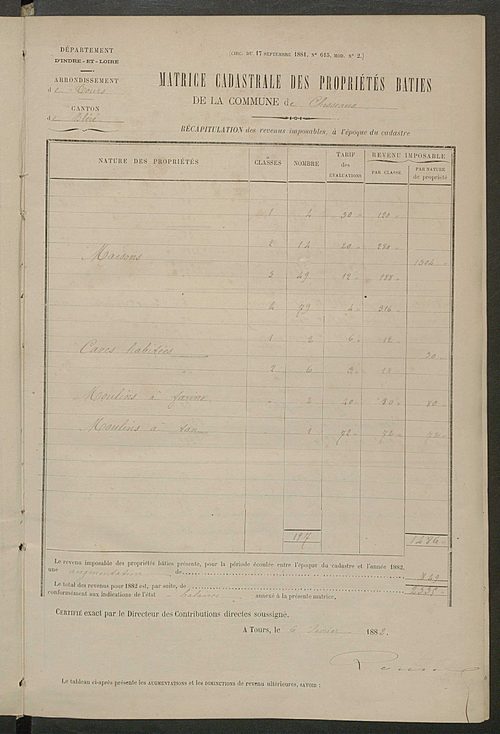 DÉPARTEMENT
D'INDRE-ET-LOIRE
ARRONDISSEMENT
de Tours
CANTON
de Bléré
(CIRC. DU 17 SEPTEMBRE 1881, N° 615, MOD. N° 2.)
MATRICE CADASTRALE DES PROPRIÉTÉS BATIES
DE LA COMMUNE de
RÉCAPITULATION des revenus imposables, à l'époque du cadastre
NATURE DES PROPRIÉTÉS CLASSES NOMBRE TARIF des ÉVALUATIONS REVENU IMPOSABLE PAR CLASSE. PAR NATURE de propriété
1 4 30 120
2 14 20 280
Maisons
3 49 12 588
4 79 4 316
1304
1 2 6 12
Caves habitées
2 6 3 18
30
Moulins à farine 2 40 80 80
Moulins à tan 1 72 72 72
197 1486
Le revenu imposable des propriétés bâties présente, pour la période écoulée entre l'époque du cadastre et l'année 1882,
une augmentation de
Le total des revenus pour 1882 est, par suite, de
conformément aux indications de l'état balance annexé à la présente matrice.
CERTIFIÉ exact par le Directeur des Contributions directes soussigné.
A TOURS, le 188
Le tableau ci-après présente les AUGMENTATIONS et les DIMINUTIONS de revenu ultérieures, SAVOIR :